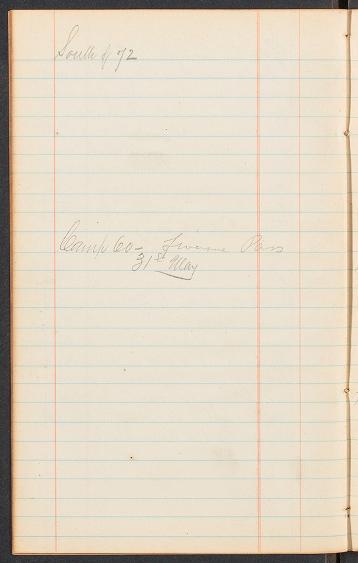 South of 72
Camp 60 - Pass
31st May